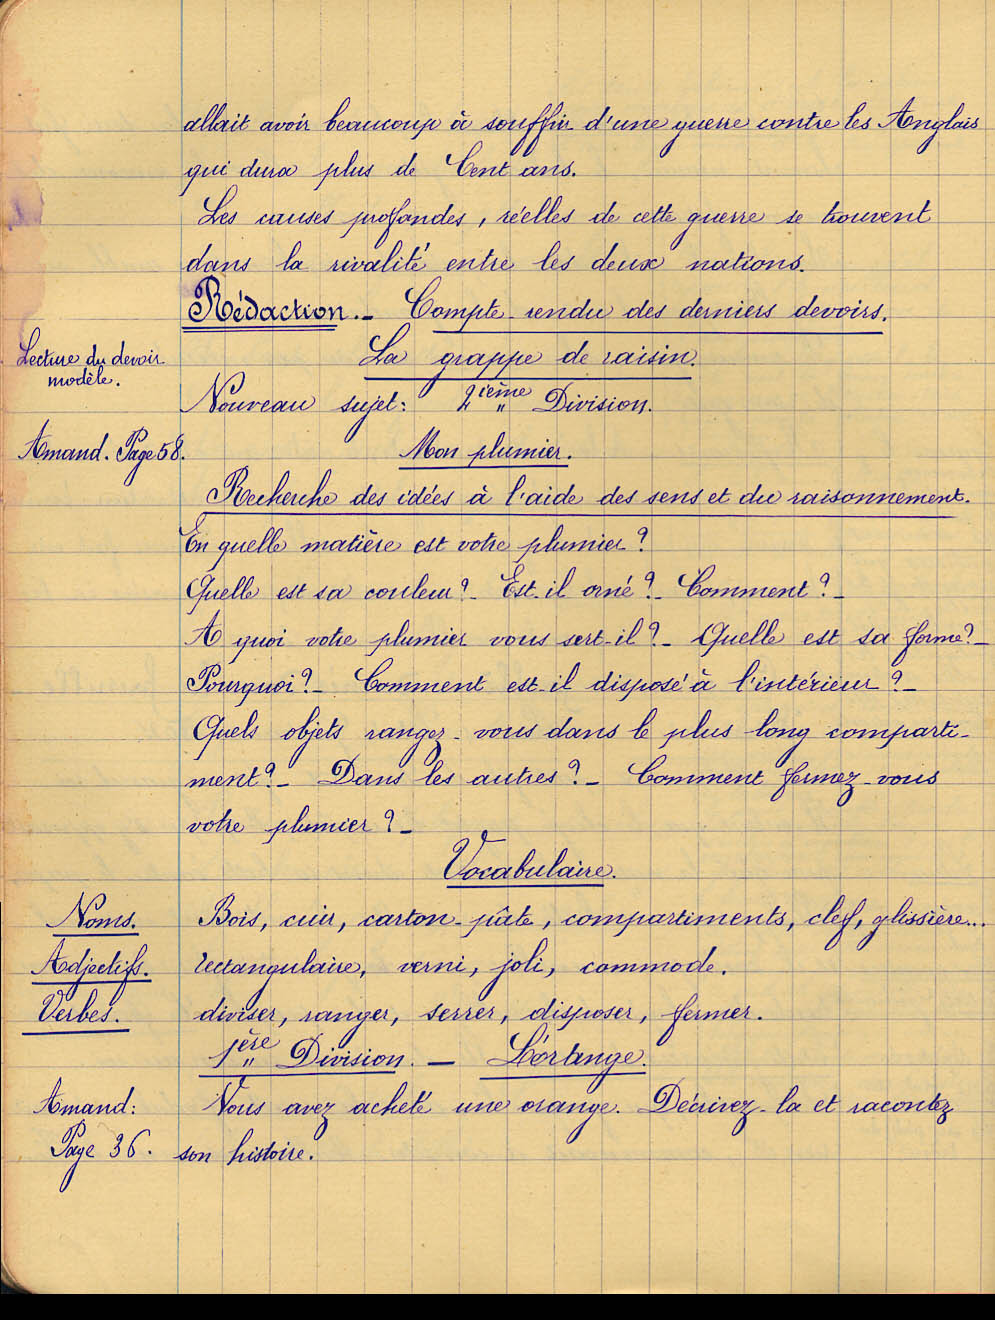 allait avoir beaucoup à souffrir d'une guerre contre les Anglais
qui dura plus de Cent ans.
Les causes profondes, réelles de cette guerre se trouvent
dans la rivalité entre les deux nations.
Rédaction. - Compte-rendu des derniers devoirs.
Lecture du devoir
modèle.
La grappe de raisin.
Nouveau sujet: 2ième Division.
Amand. Page 58.
Mon plumier.
Recherche des idées à l'aide des sens et du raisonnement.
En quelle matière est votre plumier?
Quelle est sa couleur? - Est-il orné? - Comment? -
A quoi votre plumier vous sert-il? - Quelle est sa forme? -
Pourquoi? - Comment est-il disposé à l'intérieur? -
Quels objets rangez-vous dans le plus long comparti-
ment? - Dans les autres? - Comment fermez-vous
votre plumier? -
Vocabulaire.
Noms. Bois, cuir, carton-pâte, compartiments, clef, glissière...
Adjectifs. rectangulaire, verni, joli, commode.
Verbes. diviser, ranger, serrer, disposer, fermer.
1ère Division. - L'orange.
Amand: Vous avez acheté une orange. Décrivez-la et racontez
Page 36. son histoire.